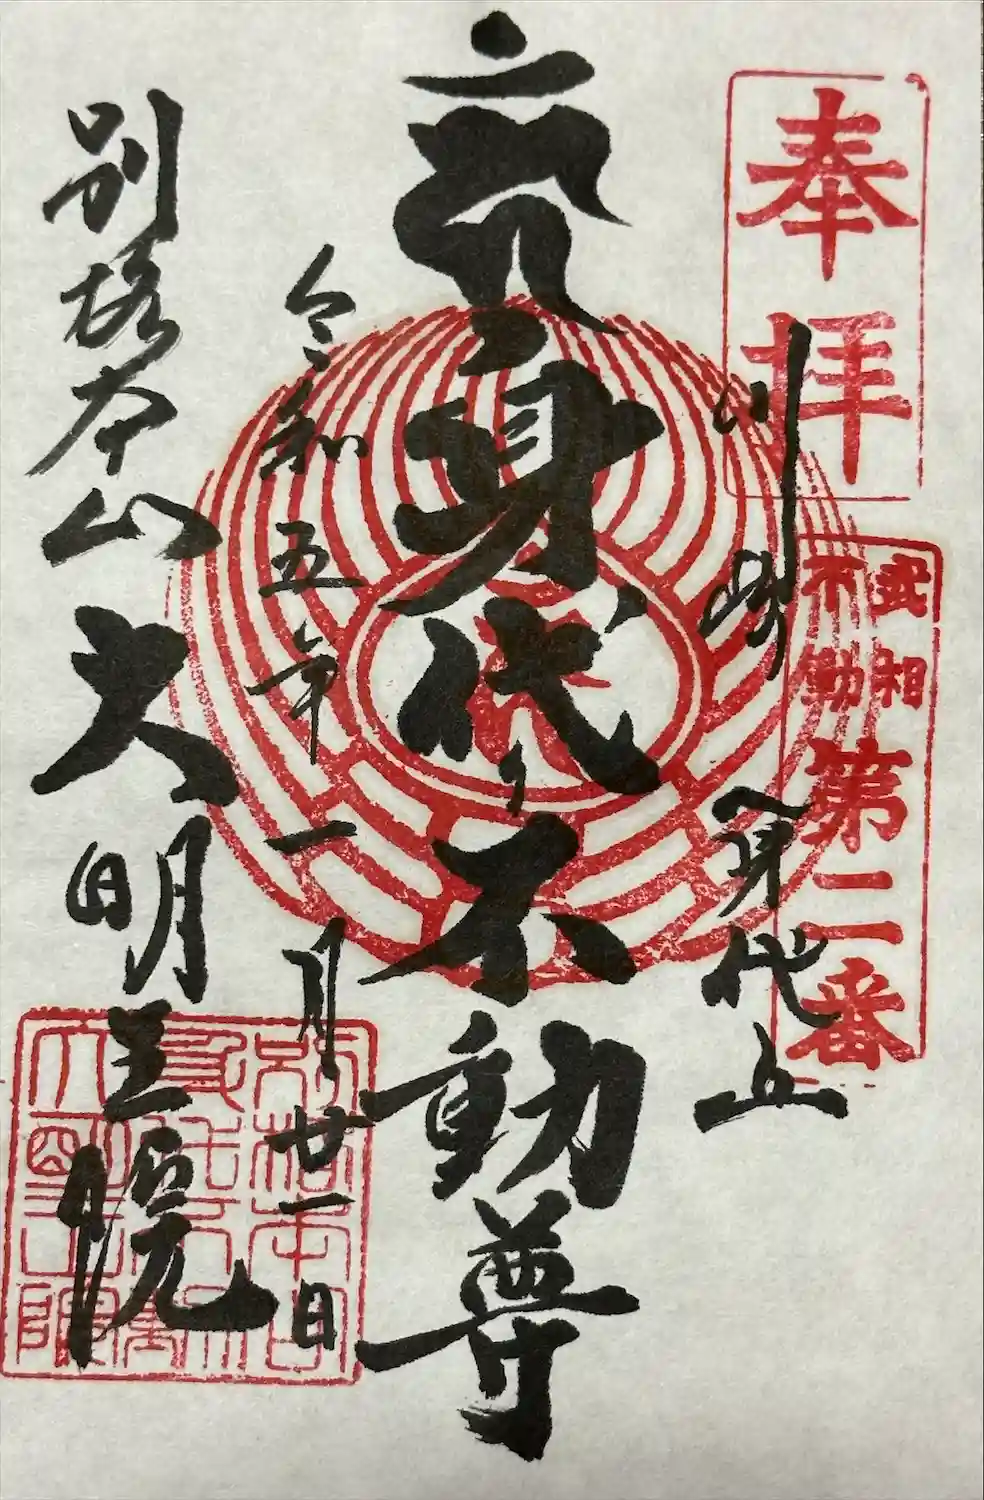 奉拝
武相
不動
第二番
川崎
身代山
身代り不動尊
令和五年一月廿一日
別格本山大明王院